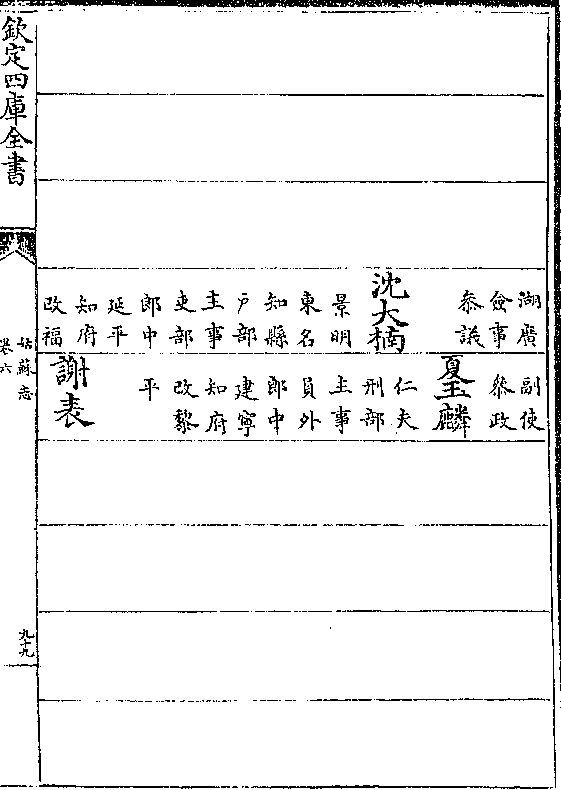 湖廣
僉事
叅議
沈大楠
景明
東名
知縣
戶部
主事
吏部
郎中
延平
知府
改福
副使
叅政
夏玉麟
仁夫
刑部
主事
員外
郎中
建寧
知府
改黎
平
謝表
欽定四庫全書
姑蘇志
卷六
九十九